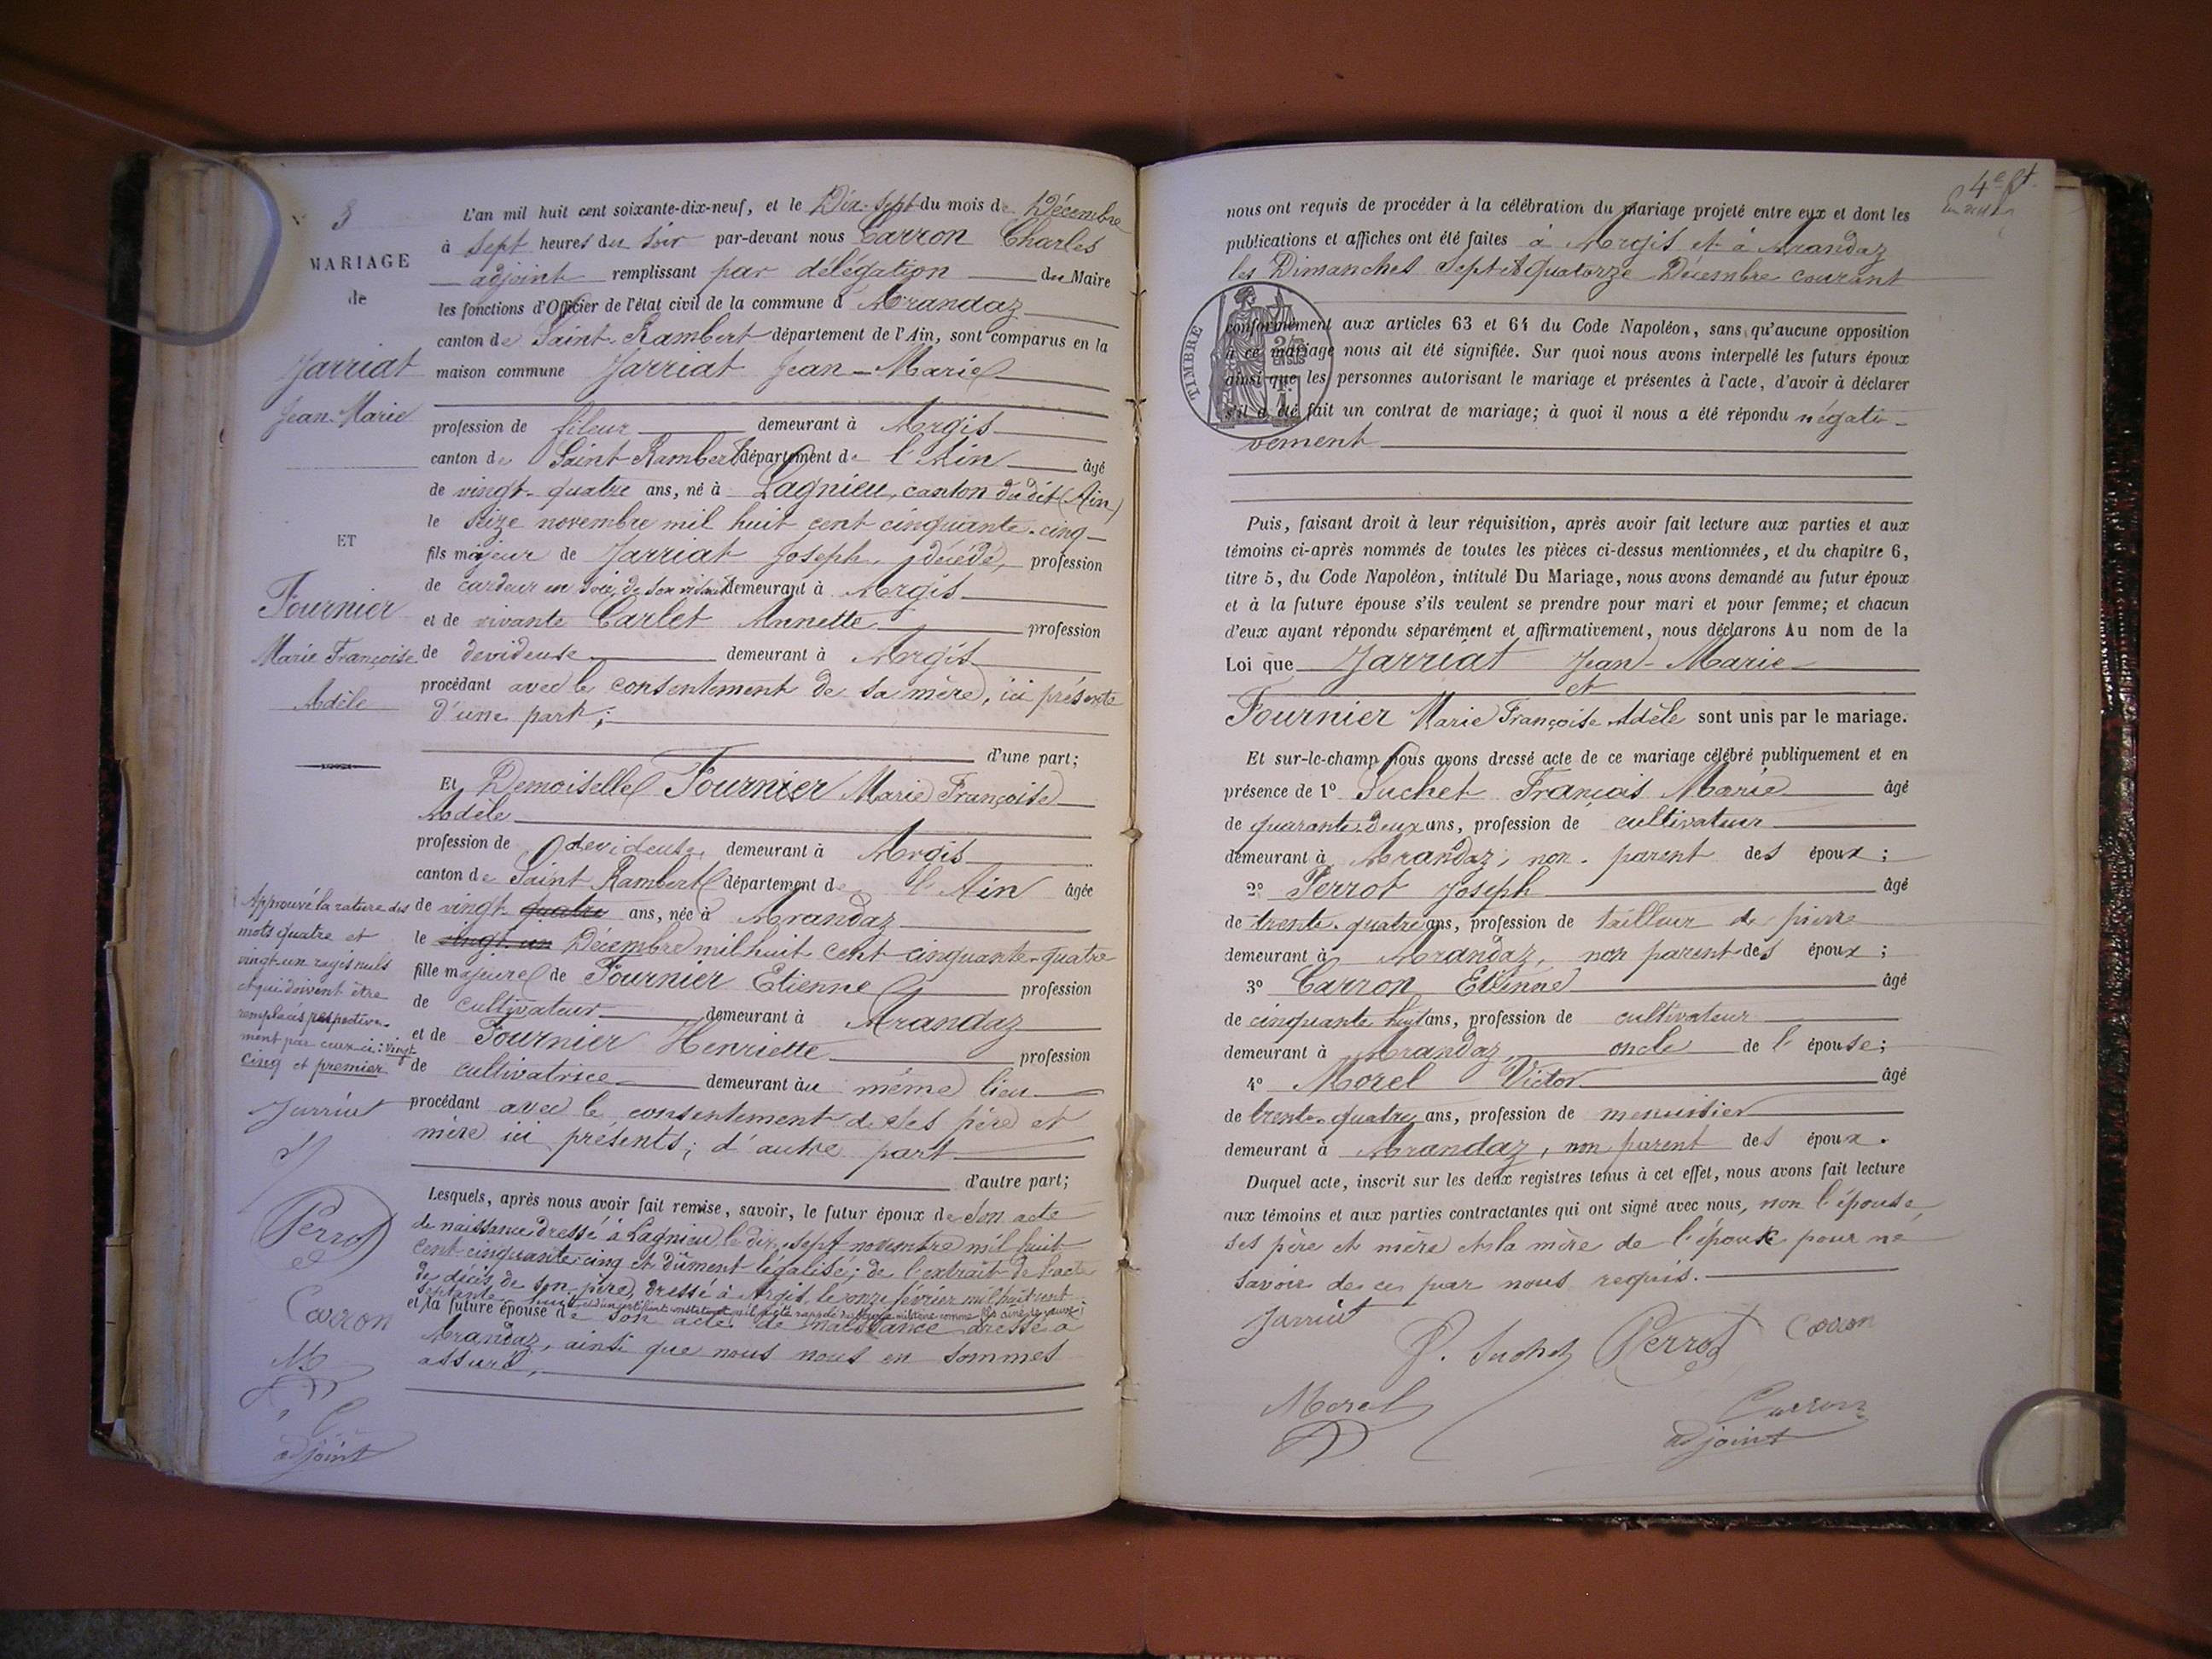 3
MARIAGE
de
Jarriat
Jean-Marie
ET
Fournier
Marie Françoise
Adèle
Approuvé la rature des
mots quatre et
vingt-un rayés nuls
et qui doivent être
remplacés respective-
ment par ceux-ci: vingt
cinq et premier
Jarriat
Perrot
Carron
adjoint
L'an mil huit cent soixante-dix-neuf, et le Dix-Sept du mois de Décembre
à Sept heures du soir par-devant nous Carron Charles
adjoint remplissant par délégation du Maire
les fonctions d'Officier de l'état civil de la commune d'Arandaz
canton de Saint-Rambert département de l'Ain, sont comparus en la
maison commune Jarriat Jean-Marie
profession de fileur demeurant à Argis
canton de Saint-Rambert département de l'Ain âgé
de vingt-quatre ans, né à Lagnieu, canton dudit (Ain)
le seize novembre mil huit cent cinquante-cinq
fils majeur de Jarriat Joseph, décédé, profession
de cardeur en soie, de son vivant demeurant à Argis
et de vivante Carlet Annette profession
de devideuse demeurant à Argis
procédant avec le consentement de sa mère, ici présente
d'une part;
d'une part;
Et Demoiselle Fournier Marie Françoise
Adèle
profession de devideuse, demeurant à Argis
canton de Saint Rambert département de l'Ain âgée
de vingt quatre ans, née à Arandaz
le vingt-un Décembre mil huit cent cinquante-quatre
fille majeure de Fournier Etienne profession
de cultivateur demeurant à Arandaz
et de Fournier Henriette profession
de cultivatrice demeurant au même lieu
procédant avec le consentement de ses père et
mère ici présents; d'autre part
d'autre part;
Lesquels, après nous avoir fait remise, savoir, le futur époux de son acte
de naissance dressé à Lagnieu, le dix-sept novembre mil huit
cent-cinquante-cinq et dûment légalisé; de l'extrait de l'acte
de décès de son père, dressé à Argis, le onze février mil huit cent
septante
et la future épouse de son acte de naissance dressé à
Arandaz, ainsi que nous nous en sommes
assuré,
4e ft.
nous ont requis de procéder à la célébration du mariage projeté entre eux et dont les
publications et affiches ont été faites à Argis et à Arandaz
les Dimanches Sept et quatorze Décembre courant
TIMBRE
conformément aux articles 63 et 64 du Code Napoléon, sans qu'aucune opposition
à ce mariage nous ait été signifiée. Sur quoi nous avons interpellé les futurs époux
ainsi que les personnes autorisant le mariage et présentes à l'acte, d'avoir à déclarer
s'il a été fait un contrat de mariage; à quoi il nous a été répondu négati-
vement
Puis, faisant droit à leur réquisition, après avoir fait lecture aux parties et aux
témoins ci-après nommés de toutes les pièces ci-dessus mentionnées, et du chapitre 6,
titre 5, du Code Napoléon, intitulé Du Mariage, nous avons demandé au futur époux
et à la future épouse s'ils veulent se prendre pour mari et pour femme; et chacun
d'eux ayant répondu séparément et affirmativement, nous déclarons Au nom de la
Loi que Jarriat Jean-Marie
et
Fournier Marie Françoise Adèle sont unis par le mariage.
Et sur-le-champ nous avons dressé acte de ce mariage célébré publiquement et en
présence de 1° Suchet François Marie âgé
de quarante-deux ans, profession de cultivateur
demeurant à Arandaz, non-parent des époux;
2° Perrot Joseph âgé
de trente-quatre ans, profession de tailleur de pierre
demeurant à Arandaz, non parent des époux;
3° Carron Etienne âgé
de cinquante huit ans, profession de cultivateur
demeurant à Arandaz, oncle de l'épouse;
4° Morel Victor âgé
de trente-quatre ans, profession de menuisier
demeurant à Arandaz, non parent des époux.
Duquel acte, inscrit sur les deux registres tenus à cet effet, nous avons fait lecture
aux témoins et aux parties contractantes qui ont signé avec nous, non l'épouse,
ses père et mère et la mère de l'époux pour ne
savoir de ce par nous requis.
Jarriat
F. Suchet Perrot Carron
Morel
Carron
adjoint